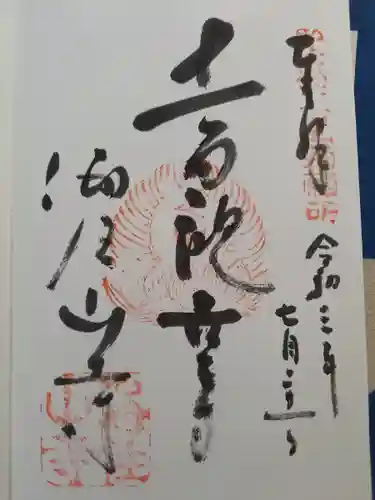 奉拝
令和三年
七月二十一日
十一面観音
海住山寺